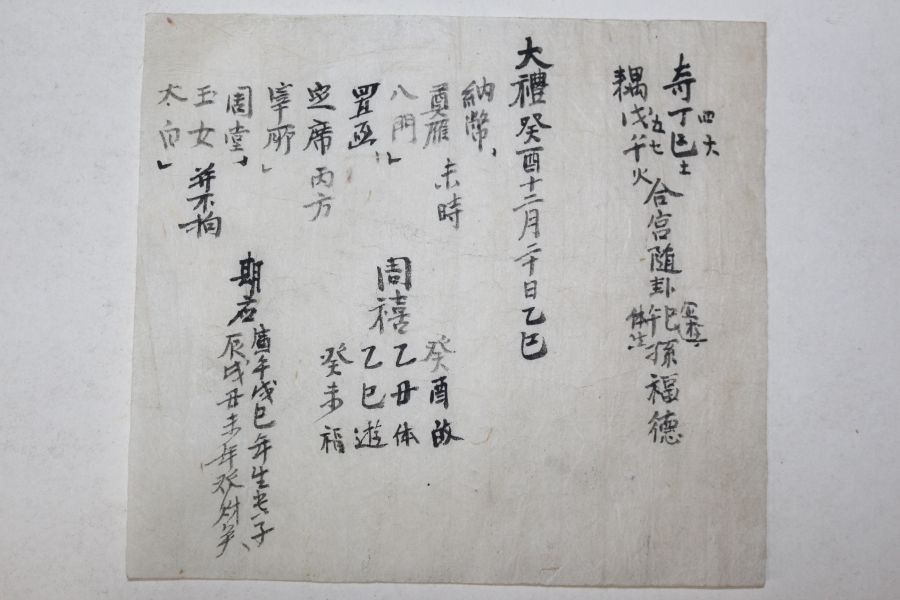 奇丁巳土
四六
耦戊午火
五七
合宮随卦
孫福德
大禮癸酉十二月二十日乙巳
納幣
奠雁 未時
八門
置函
定席 丙方
宰所
周堂
玉女 並不拘
太白
周禧
癸酉故
乙丑体
乙巳遊
癸未福
期若
庚午戊巳年生者子
辰戌丑未年